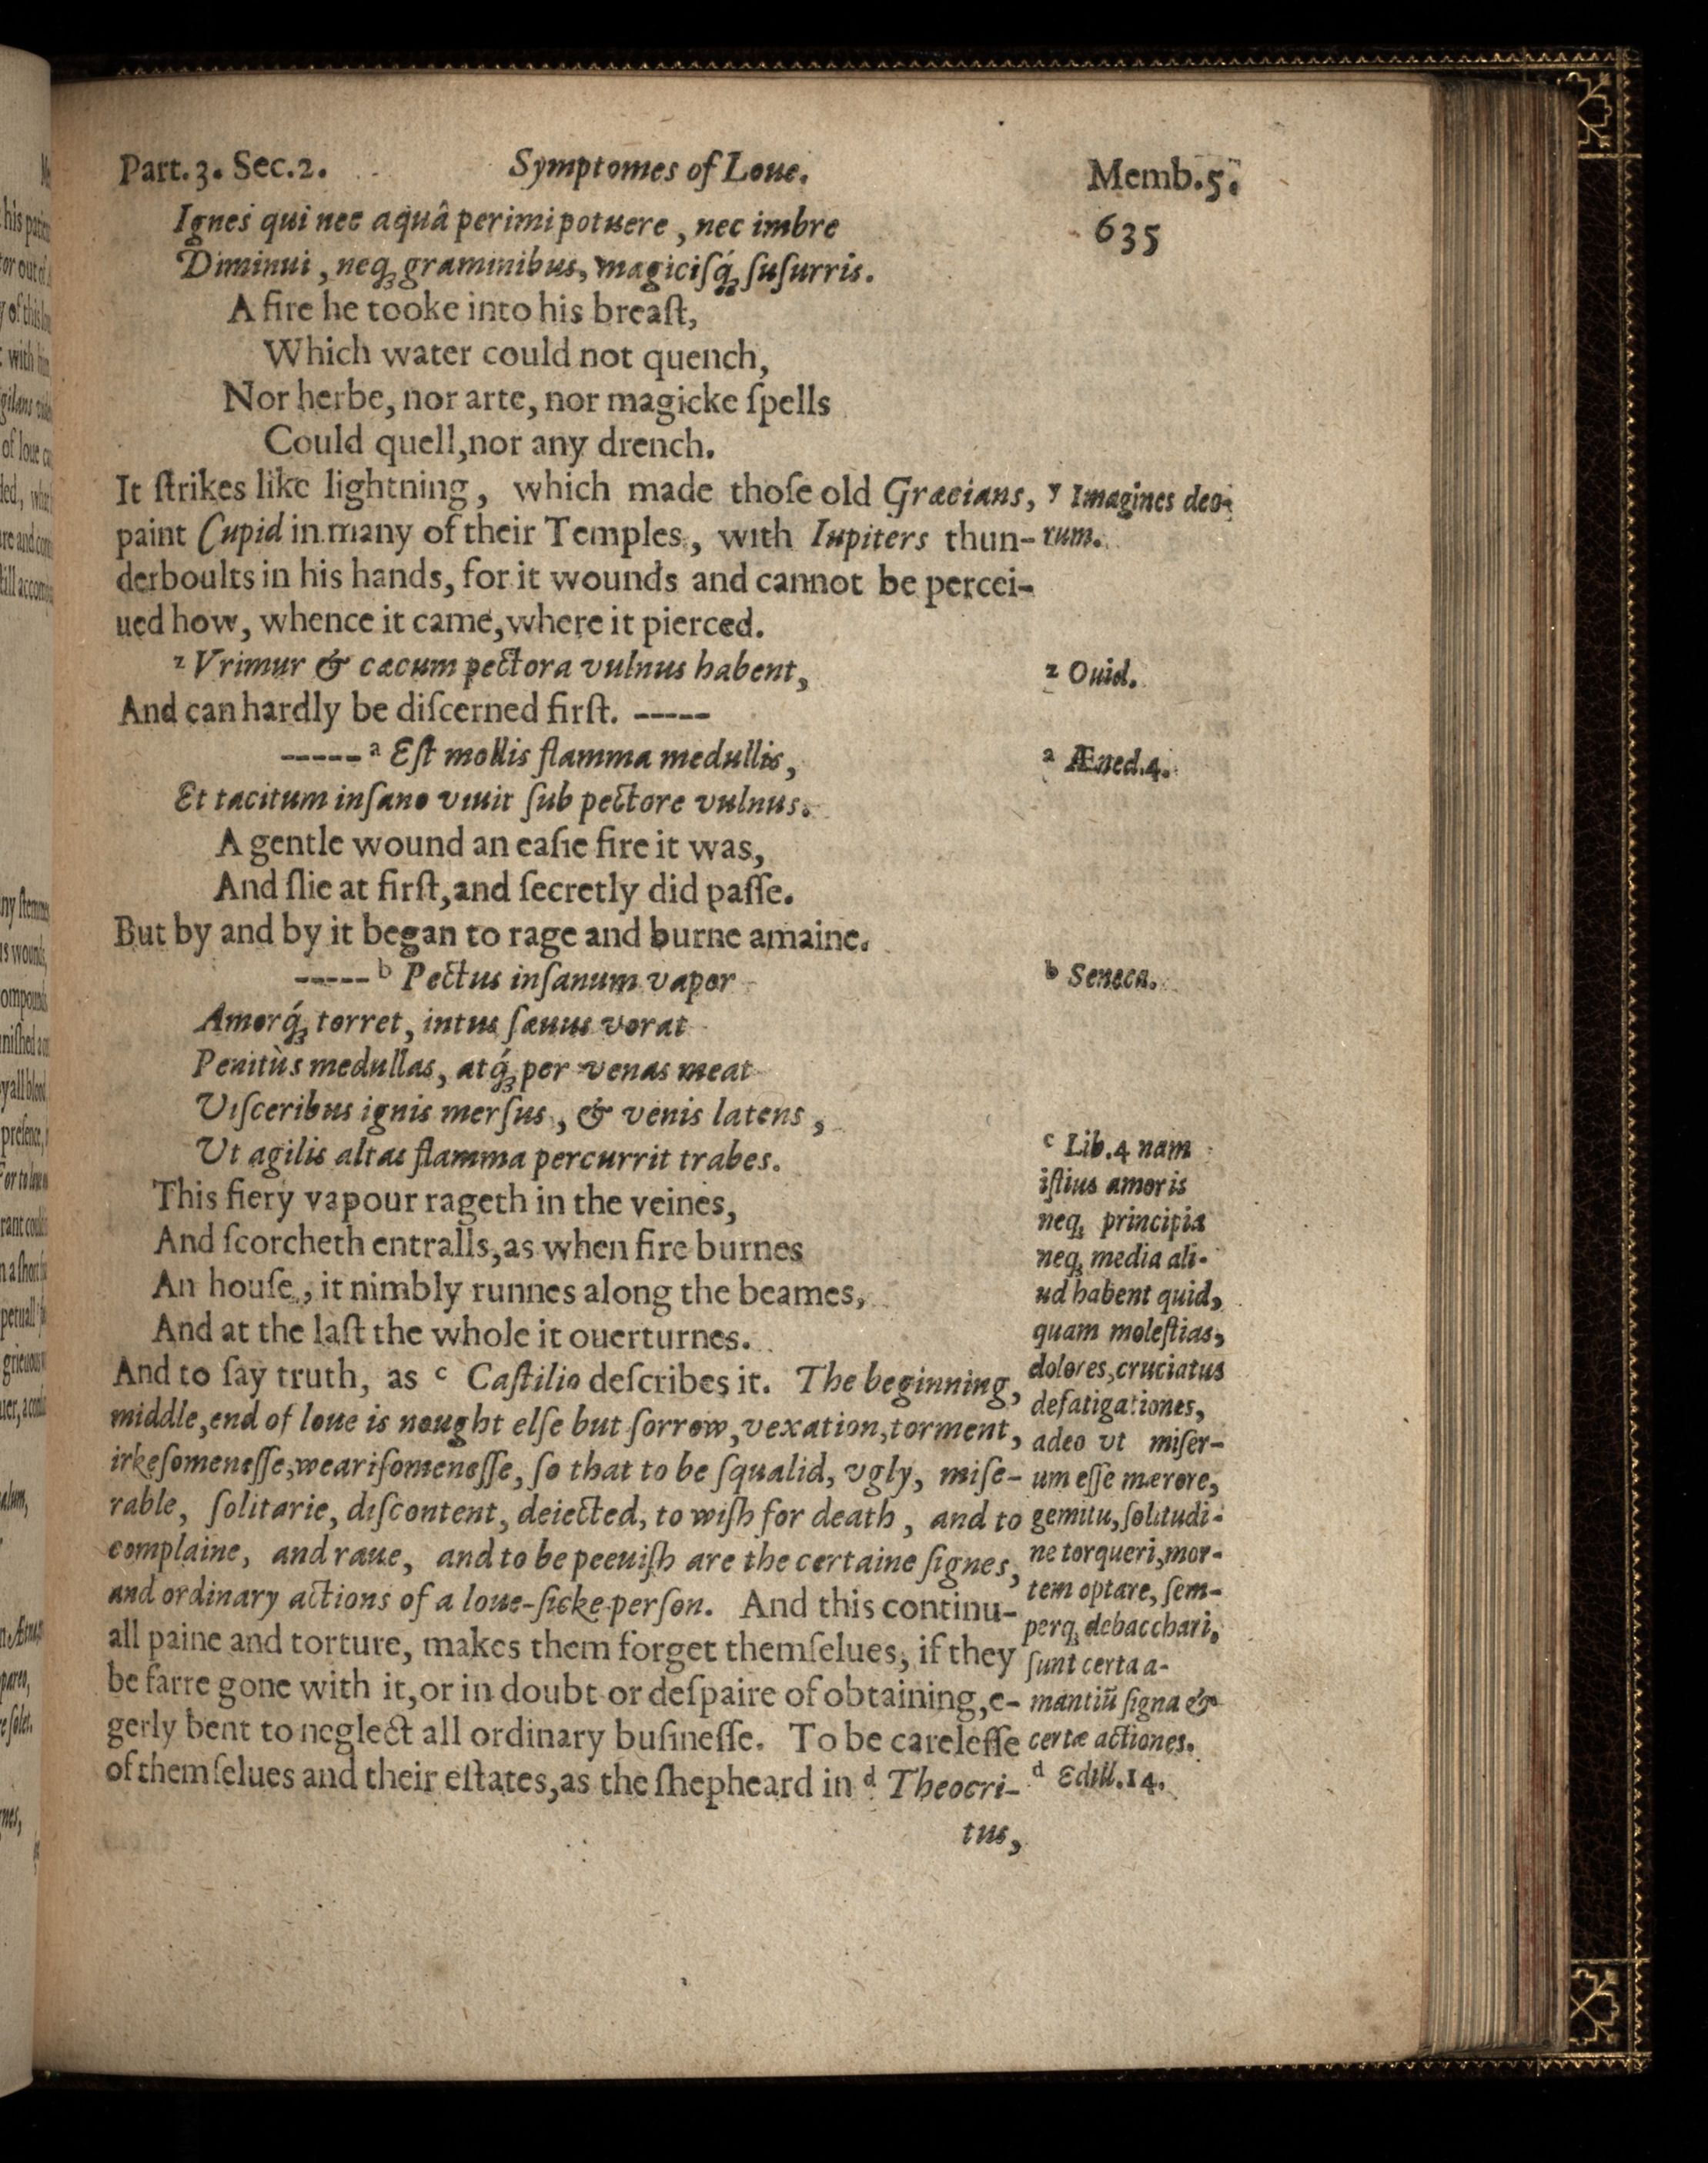 Part.3. Sec.2. Symptomes of Loue. Memb.5.
635
Ignes qui nec aquâ perimi potuere, nec imbre
Diminui, neqꝫ graminibus, magiciſq́ꝫ ſuſurris.
A fire he tooke into his breaſt,
Which water could not quench,
Nor herbe, nor arte, nor magicke ſpells
Could quell, nor any drench.
It ſtrikes like lightning, which made thoſe old Græcians,
paint Cupid in many of their Temples, with Iupiters thun-
derboults in his hands, for it wounds and cannot be percei-
ued how, whence it came, where it pierced.
z Vrimur & cæcum pectora vulnus habent,
And can hardly be diſcerned firſt. -----
----- a Eſt mollis flamma medullis,
Et tacitum inſano viuit ſub pectore vulnus.
A gentle wound an eaſie fire it was,
And ſlie at firſt, and ſecretly did paſſe.
But by and by it began to rage and burne amaine.
----- b Pectus inſanum vapor
Amorq́ꝫ torret, intus ſæuus vorat
Penitùs medullas, atq́ꝫ per venas meat
Viſceribus ignis merſus, & venis latens,
Ut agilis altas flamma percurrit trabes.
This fiery vapour rageth in the veines,
And ſcorcheth entralls, as when fire burnes
An houſe, it nimbly runnes along the beames,
And at the laſt the whole it ouerturnes.
And to ſay truth, as c Caſtilio deſcribes it. The beginning,
middle, end of loue is nought elſe but ſorrow, vexation, torment,
irkeſomeneſſe, weariſomeneſſe, ſo that to be ſqualid, vgly, miſe-
rable, ſolitarie, diſcontent, deiected, to wiſh for death, and to
complaine, and raue, and to be peeuiſh are the certaine ſignes,
and ordinary actions of a loue-ſicke perſon. And this continu-
all paine and torture, makes them forget themſelues, if they
be farre gone with it, or in doubt or deſpaire of obtaining, e-
gerly bent to neglect all ordinary buſineſſe. To be careleſſe
of themſelues and their eſtates, as the ſhepheard in d Theocri-
tus,
y Imagines deo-
rum.
z Ouid.
a Æned.4.
b Seneca.
c Lib.4 nam
iſtius amoris
neqꝫ principia
neqꝫ media ali-
ud habent quid,
quam moleſtias,
dolores, cruciatus
defatigationes,
adeo vt miſer-
um eſſe mærore,
gemitu, ſolitudi-
ne torqueri, mor-
tem optare, ſem-
perqꝫ debacchari,
ſunt certa a-
mantiū ſigna &
certæ actiones.
d Edill.14.